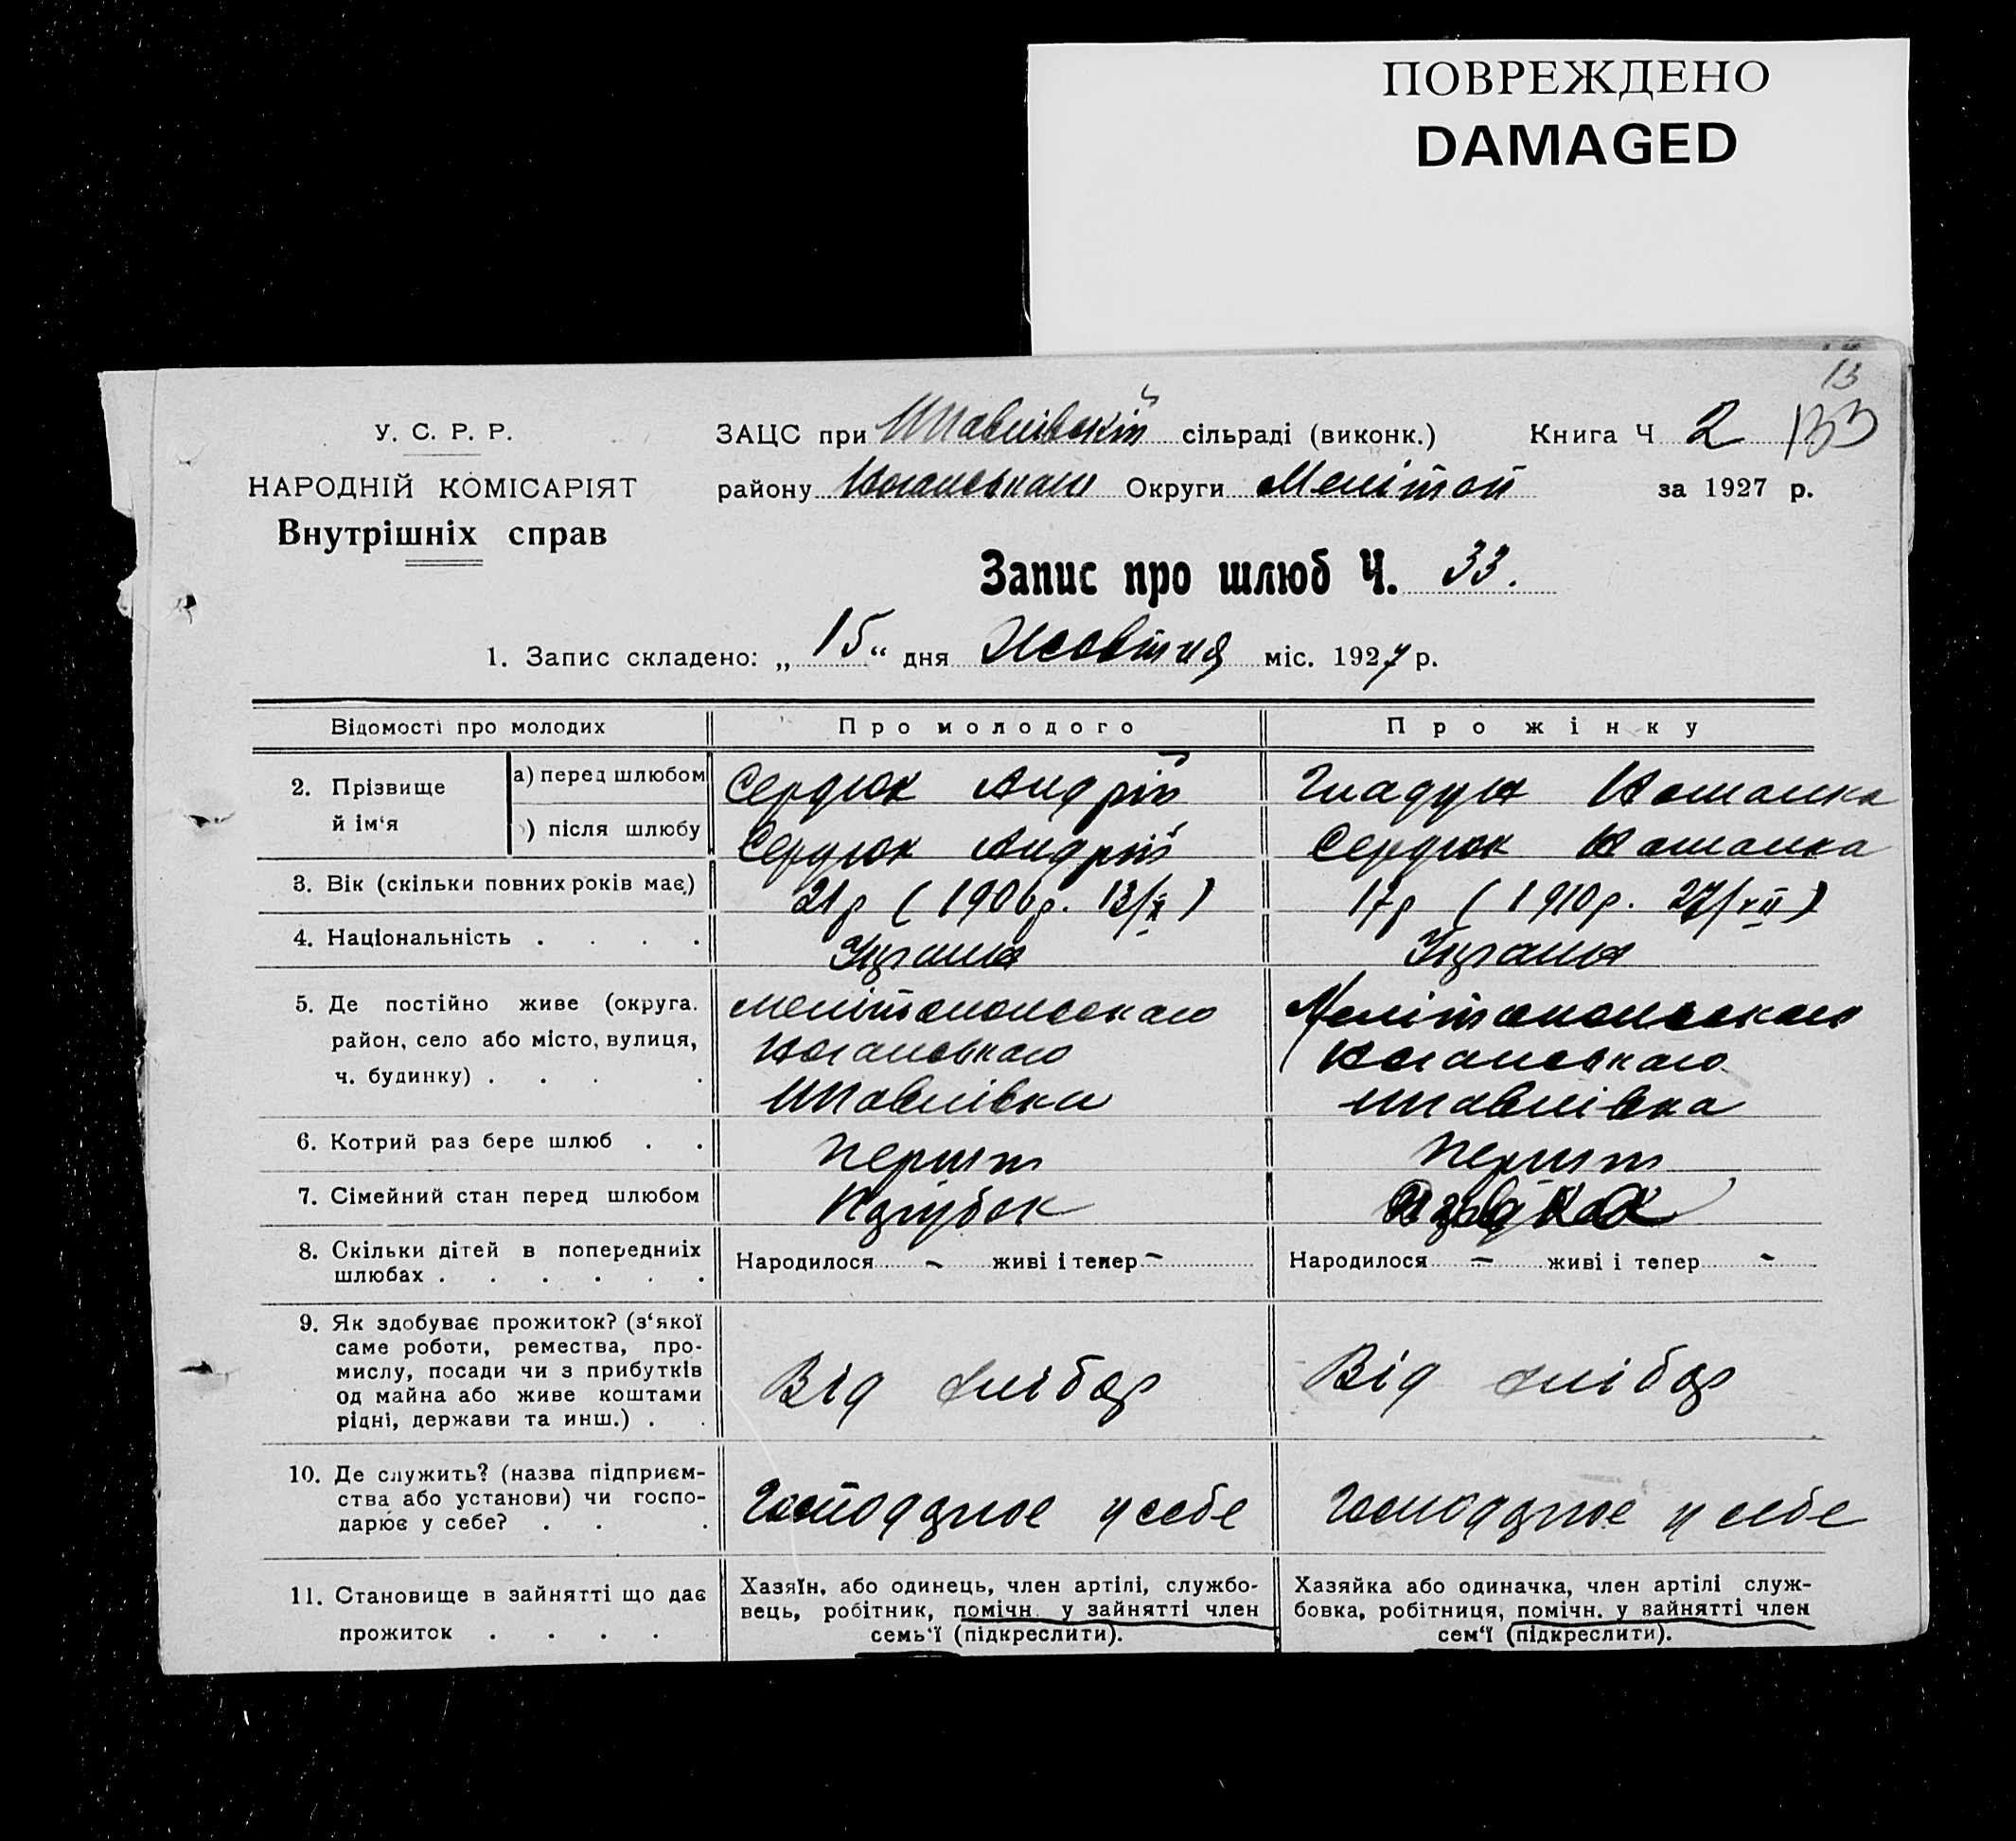 ПОВРЕЖДЕНО
DAMAGED
13
133
У. С. Р. Р.
НАРОДНІЙ КОМІСАРІЯТ
Внутрішніх справ
ЗАЦС при Шпавлівській сільраді (виконк.) Книга Ч 2
району Ногайського Округи Мелітоп за 1927 р.
Запис про шлюб Ч. 33.
1. Запис складено: „ 15 “ дня Жовтня міс. 1927 р.
Відомості про молодих
Про молодого
Про жінку
2. Прізвище й ім‘я
а) перед шлюбом Сердюк Андрій Гладун Наталка
) після шлюбу Сердюк Андрій Сердюк Наталка
3. Вік (скільки повних років має) 21 р (1906 р. 13/X) 17 р (1910 р. 27/VII)
4. Національність . . . .
5. Де постійно живе (округа. Мелітопольского Мелітопольского
район, село або місто, вулиця, Ногайського Ногайського
ч. будинку) . . . . Шпавлівка Шпавлівка
6. Котрий раз бере шлюб . . Перший Перший
7. Сімейний стан перед шлюбом Парубок
8. Скільки дітей в попередниіх шлюбах . . . . . .
Народилося - живі і тепер -
Народилося - живі і тепер -
9. Як здобуває прожиток? (з‘якої
саме роботи, ремества, про-
мислу, посади чи з прибутків
од майна або живе коштами
рідні, держави та инш.) . .
Від хлібор
Від хлібор
10. Де служить? (назва підприєм-
ства або установи) чи госпо-
дарює у себе? . . .
Господарює у себе
Господарює у себе
11. Становище в зайнятті що дає
прожиток . . . .
Хазяїн, або одинець, член артілі, службо-
вець, робітник, помічн. у зайнятті член
семь‘ї (підкреслити).
Хазяйка або одиначка, член артілі служ-
бовка, робітниця, помічн. у зайнятті член
сем‘ї (підкреслити).